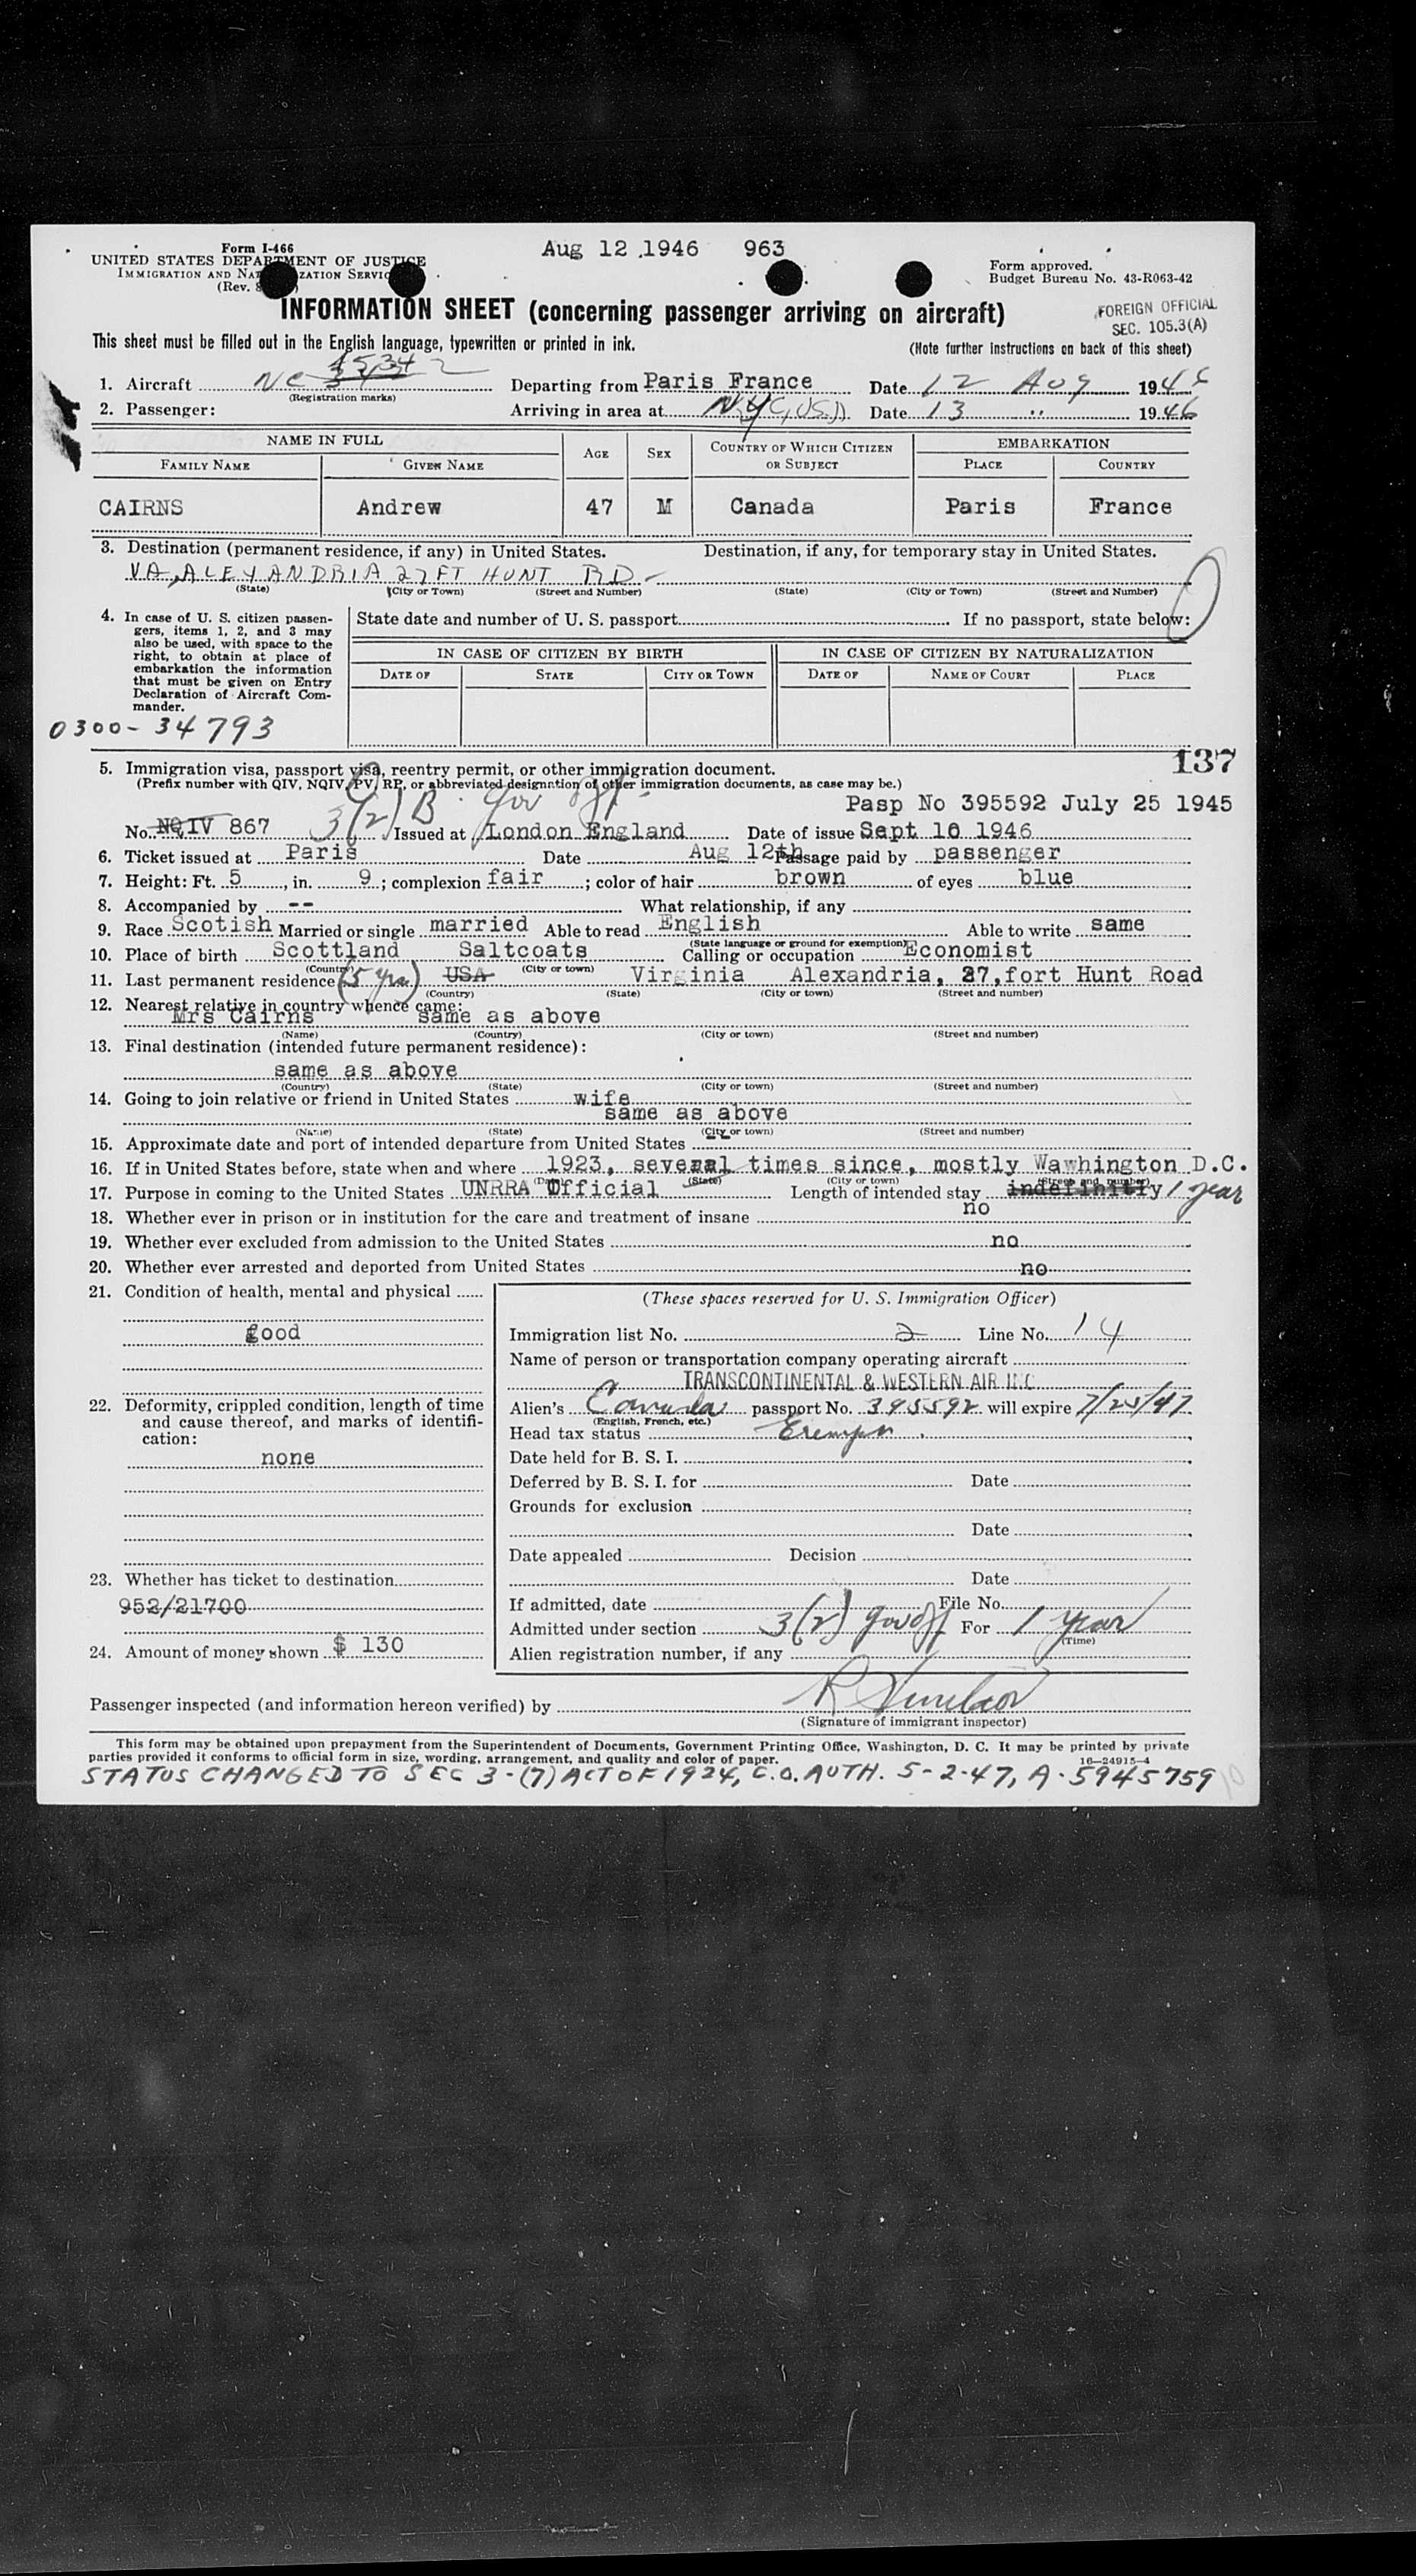 Form I-466
UNITED STATES DEPARTMENT OF JUSTICE
IMMIGRATION AND NATURALIZATION SERVICE
(Rev. 8
Aug 12 1946 963
Form approved.
Budget Bureau No. 43-R063-42
INFORMATION SHEET (concerning passenger arriving on aircraft)
FOREIGN OFFICIAL
SEC. 105.3(A)
This sheet must be filled out in the English language, typewritten or printed in ink.
(Note further instructions on back of this sheet)
1. Aircraft NC Departing from Paris France Date 12 Aug 1946
(Registration marks)
2. Passenger: Arriving in area at N.Y.C, USA Date 13 " 1946
NAME IN FULL AGE SEX COUNTRY OF WHICH CITIZEN OR SUBJECT EMBARKATION
FAMILY NAME GIVEN NAME PLACE COUNTRY
CAIRNS Andrew 47 M Canada Paris France
3. Destination (permanent residence, if any) in United States. Destination, if any, for temporary stay in United States.
VA, ALEXANDRIA 27 FT HUNT RD -
(State) (City or Town) (Street and Number) (State) (City or Town) (Street and Number)
4. In case of U. S. citizen passen-
gers, items 1, 2, and 3 may
also be used, with space to the
right, to obtain at place of
embarkation the information
that must be given on Entry
Declaration of Aircraft Com-
mander.
State date and number of U. S. passport If no passport, state below:
IN CASE OF CITIZEN BY BIRTH IN CASE OF CITIZEN BY NATURALIZATION
DATE OF STATE CITY OR TOWN DATE OF NAME OF COURT PLACE
0300-34793
137
5. Immigration visa, passport visa, reentry permit, or other immigration document.
(Prefix number with QIV, NQIV, PV, RP, or abbreviated designation of other immigration documents, as case may be.)
3(2) B. Gov Off.
Pasp No 395592 July 25 1945
No. NQIV 867 Issued at London England Date of issue Sept 10 1946
6. Ticket issued at Paris Date Aug 12th Passage paid by passenger
7. Height: Ft. 5, in. 9; complexion fair; color of hair brown of eyes blue
8. Accompanied by -- What relationship, if any
9. Race Scotish Married or single married Able to read English Able to write same
(State language or ground for exemption)
10. Place of birth Scottland Saltcoats Calling or occupation Economist
(Country) (City or town)
11. Last permanent residence (5 yrs) USA Virginia Alexandria, 27, fort Hunt Road
(Country) (State) (City or town) (Street and number)
12. Nearest relative in country whence came:
Mrs Cairns same as above
(Name) (Country) (City or town) (Street and number)
13. Final destination (intended future permanent residence):
same as above
(Country) (State) (City or town) (Street and number)
14. Going to join relative or friend in United States wife
same as above
(Name) (State) (City or town) (Street and number)
15. Approximate date and port of intended departure from United States --
16. If in United States before, state when and where 1923, several times since, mostly Wawhington D.C.
(Date) (State) (City or town) (Street and number)
17. Purpose in coming to the United States UNRRA Official Length of intended stay indefinitly 1 year
18. Whether ever in prison or in institution for the care and treatment of insane no
19. Whether ever excluded from admission to the United States no
20. Whether ever arrested and deported from United States no
21. Condition of health, mental and physical
good
22. Deformity, crippled condition, length of time
and cause thereof, and marks of identifi-
cation:
none
23. Whether has ticket to destination
952/21700
24. Amount of money shown $ 130
(These spaces reserved for U. S. Immigration Officer)
Immigration list No. 2 Line No. 14
Name of person or transportation company operating aircraft
TRANSCONTINENTAL & WESTERN AIR INC
Alien's Canada passport No. 395592 will expire 7/25/47
(English, French, etc.)
Head tax status Exempt
Date held for B. S. I.
Deferred by B. S. I. for Date
Grounds for exclusion
Date
Date appealed Decision
Date
If admitted, date File No.
Admitted under section 3(2) gov off For 1 year
(Time)
Alien registration number, if any
Passenger inspected (and information hereon verified) by
(Signature of immigrant inspector)
This form may be obtained upon prepayment from the Superintendent of Documents, Government Printing Office, Washington, D. C. It may be printed by private
parties provided it conforms to official form in size, wording, arrangement, and quality and color of paper. 16—24915-4
STATUS CHANGED TO SEC 3-(7) ACT OF 1924, C.O. AUTH. 5-2-47, A-5945759